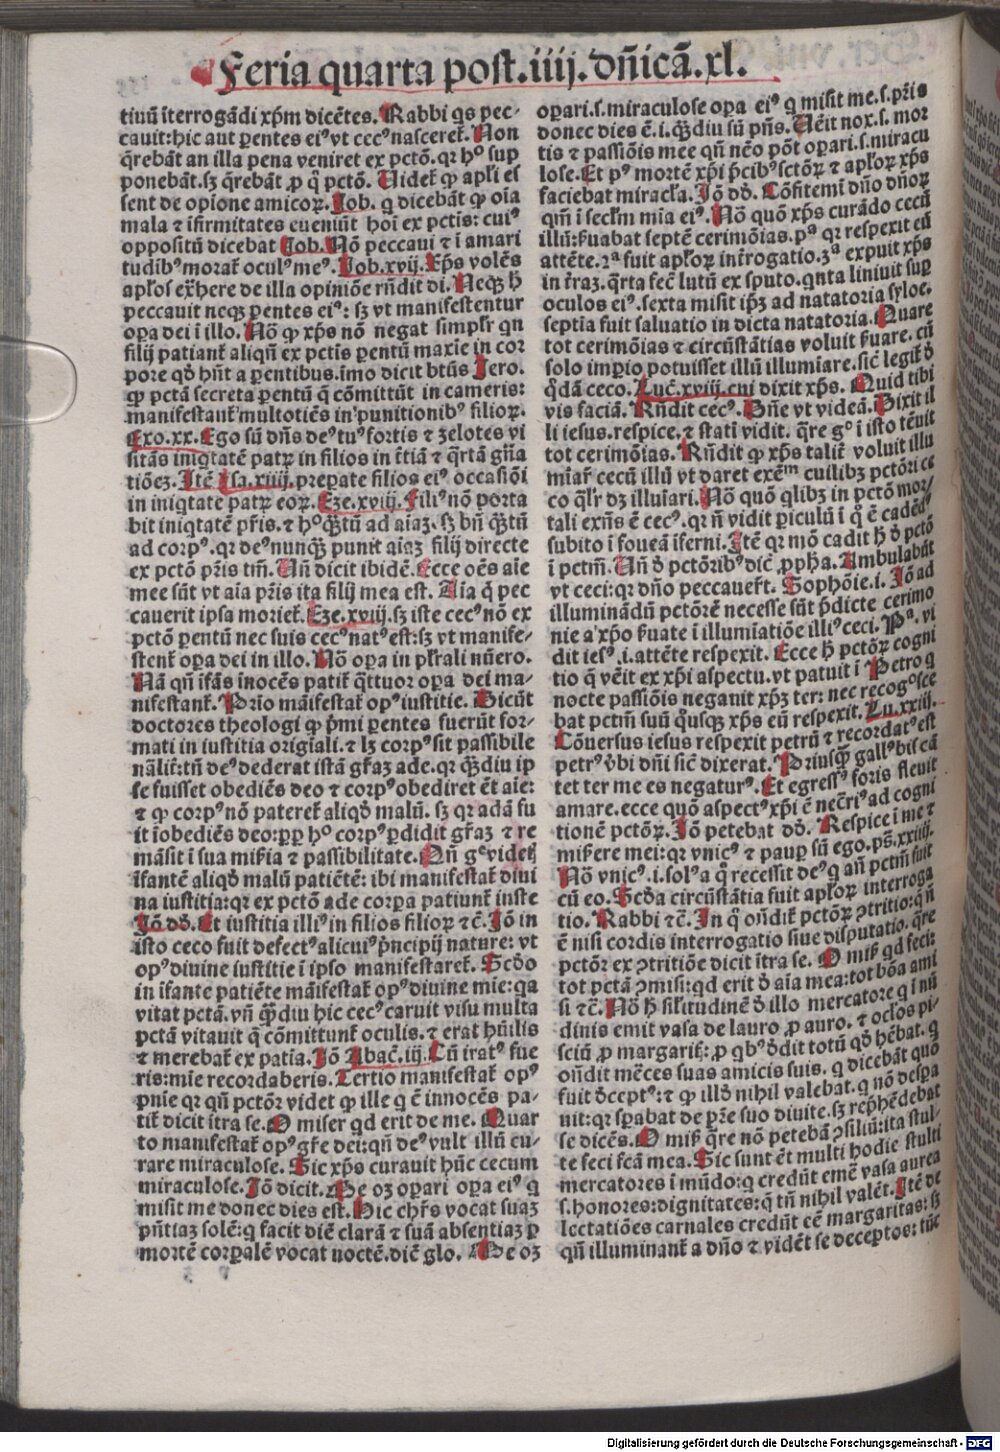 Feria quarta post.iiij.dñicā.xl.
tiuū īterrogādi xp̄m dicētes. Rabbi qs pec-
cauit: hic aut parentes eiꝰ vt cecꝰ nasceret̄. Non
q̄rebāt an illa pena veniret ex pctō. qr hoc sup
ponebāt. sz q̄rebāt ꝓ q̄ pctō. Videt̄ ꝙ apl̄i es
sent de opione amicoꝝ. Job. q dicebāt ꝙ oīa
mala ⁊ īfirmitates eueniūt hoī ex pctis: cuiꝰ
oppositū dicebat Job. Nō peccaui ⁊ ī amari
tudibꝰ morat̄ oculꝰ meꝰ. Job.xvij. Xp̄s volēs
apl̄os ex̄here de illa opiniōe rn̄dit di. Necꝫ h̄
peccauit necꝫ parentes eiꝰ: sz vt manifestentur
opa dei ī illo. Nō ꝙ xp̄s nō negat simpl̄r qn
filij patiant̄ aliqn̄ ex pctis parentū maxie in cor
pore qd̄ hn̄t a parentibus. imo dicit btūs Jero.
ꝙ pctā secreta parentū q̄ cōmittūt in cameris:
manifestant̄ multotiēs in punitionibꝰ filioꝝ.
Exo.xx. Ego sū dn̄s deꝰ tuꝰ fortis ⁊ zelotes vi
sitās iniqtatē patrū in filios in t̄tiā ⁊ q̄rtā gn̄a
tiōeꝫ. Itē Isa.xiiij. preparate filios eiꝰ occasiōi
in iniqtate patrū eoꝝ. Eze.xviij. Filiꝰ nō porta
bit iniqtatē pr̄is. ⁊ hoc q̄ꝫtū ad aīaꝫ. sz bn̄ q̄ꝫtū
ad corpꝰ. qr deꝰ nunqꝫ punit aīaꝫ filij directe
ex pctō pr̄is tm̄. Un̄ dicit ibidē. Ecce oēs aīe
mee sūt vt aīa pr̄is ita filij mea est. Aīa q̄ pec
cauerit ipsa moriet̄. Eze.xviij. sz iste cecꝰ nō ex
pctō parentū nec suis cecꝰ natꝰ est: sz vt manife-
stent̄ opa dei in illo. Nō opa in pl̄rali nūero.
Nā qn̄ īfās īnocēs patit̄ q̄ttuor opa dei ma-
nifestant̄. Prīo māifestat̄ opꝰ iustitie. Dicūt
doctores theologi ꝙ p̄mi parentes fuerūt for-
mati in iustitia origiali. ⁊ lꝫ corpꝰ sit passibile
nālit̄: tn̄ deꝰ dederat istā gr̄aꝫ ade. qr q̄ꝫdiu ip
se fuisset obediēs deo ⁊ corpꝰ obediret ēt aīe:
⁊ ꝙ corpꝰ nō pateret̄ aliqd̄ malū. sz qr adā fu
it īobediēs deo: ꝓp̄ hoc corpꝰ ꝑdidit gr̄aꝫ ⁊ re
māsit ī sua mis̄ia ⁊ passibilitate. Qn̄ ge videtꝫ
īfantē aliqd̄ malū patiētē: ibi manifestat̄ diui
na iustitia: qr ex pctō ade corpa patiunt̄ iuste
Jō dd̄. Et iustitia illiꝰ in filios filioꝝ ⁊c̄. Jō in
isto ceco fuit defectꝰ alicuiꝰ p̄ncipij nature: vt
opꝰ diuine iustitie ī ipso manifestaret̄. Scd̄o
in īfante patiēte māifestat̄ opꝰ diuine mīe: qa
vitat pctā. vn̄ q̄ꝫdiu hic cecꝰ caruit visu multa
pctā vitauit q̄ cōmittunt̄ oculis. ⁊ erat hūilis
⁊ merebat̄ ex patīa. Jō Abac̄.iij. Cū iratꝰ fue
ris: mīe recordaberis. Tertio manifestat̄ opꝰ
pnīe qr qn̄ pctōr videt ꝙ ille q ē īnocēs pa-
tit̄ dicit ītra se. O miser qd erit de me. Quar
to manifestat̄ opꝰ gr̄e dei: qn̄ deꝰ vult illū cu-
rare miraculose. Sic xp̄s curauit hūc cecum
miraculose. Jō dicit. Me oꝫ opari opa eiꝰ q
misit me donec dies est. Hic chr̄s vocat suaꝫ
pn̄tiaꝫ solē: q facit diē clarā ⁊ suā absentiaꝫ ꝑ
mortē corpalē vocat noctē. diē glo. Me oꝫ
opari. s. miraculose opa eiꝰ q misit me. s. pr̄is
donec dies ē. i. q̄ꝫdiu sū pn̄s. Uēit nox. s. mor
tis ⁊ passiōis mee qn̄ nēo pōt opari. s. miracu
lose. Et pꝰ mortē xp̄i p̄cibꝰ sctōꝝ ⁊ apl̄oꝝ xp̄s
faciebat miracl̄a. Jō dd̄. Cōfitemī dn̄o dn̄oꝝ
qm̄ ī secl̄m mīa eiꝰ. Nō quō xp̄s curādo cecū
illū: ẜuabat septē cerimōias. pa qr respexit eū
attēte. 2a fuit apl̄oꝝ int̄rogatio. 3a expuit xp̄s
in t̄raꝫ. q̄rta fec̄ lutū ex sputo. qnta liniuit sup
oculos eiꝰ. sexta misit ip̄ꝫ ad natatoria syloe.
septīa fuit saluatio in dicta natatoria. Quare
tot cerimōias ⁊ circūstātias voluit ẜuare. cū
solo impio potuisset illū illumiare. sic̄ legit̄ d̄
q̄dā ceco. Luc̄.xviij. cui dixit xp̄s. Quid tibi
vis faciā. Rn̄dit cecꝰ. Dn̄e vt videā. Dixit il
li iesus. respice. ⁊ statī vidit. q̄re go ī isto tēuit
tot cerimōias. Rn̄dit ꝙ xp̄s talit̄ voluit illu
mīar̄ cecū illū vt daret exēm cuilibꝫ pctōri ce
co ql̄r dꝫ illuīari. Nō quō qlibꝫ in pctō mor/
tali exn̄s ē cecꝰ. qr n̄ vidit periculū ī q̄ ē cadēdꝰ
subito ī foueā īferni. Itē qr mō cadit h̄ d̄ pctō
ī petm̄. Un̄ d̄ pctōribꝰ dic̄ ꝓph̄a. Ambulabūt
vt ceci: qr dn̄o peccauer̄t. Sophōie.i. Jō ad
illuminādū pctōrē necesse sūt p̄dicte cerimo
nie a xp̄o ẜuate ī illumiatiōe illiꝰ ceci. Pa. vi
dit iesꝰ. i. attēte respexit. Ecce h̄ pctōꝝ cogni
tio q̄ vēit ex xp̄i aspectu. vt patuit ī Petro q
nocte passiōis negauit xp̄ꝫ ter: nec recogosce
bat pctm̄ suū q̄usqꝫ xp̄s eū respexit. Lu.xxij.
Cōuersus iesus respexit petrū ⁊ recordatꝰ est
petrꝰ v̄bi dn̄i sic̄ dixerat. Priusq̄ꝫ gallꝰ bis cā
tet ter me es negaturꝰ. Et egressꝰ foris fleuit
amare. ecce quō aspectꝰ xp̄i ē nec̄riꝰ ad cogni
tionē pctōꝝ. Jō petebat dd̄. Respice ī me ⁊
mis̄ere mei: qr vnicꝰ ⁊ paup sū ego. ps̄.xxiiij.
Nō vnicꝰ. i. solꝰ a q̄ recessit deꝰ qn̄ petm̄ fuit
cū eo. Scd̄a circūstātia fuit apl̄oꝝ interroga
tio. Rabbi ⁊c̄. In q̄ on̄dit̄ pctōꝝ ꝯtritio: q̄ n̄
ē nisi cordis interrogatio siue disputatio. q̄re
pctōr ex ꝯtritiōe dicit ītra se. O mis̄ qd feci:
tot pctā ꝯmisi: qd erit d̄ aīa mea: tot bōa ami
si ⁊c̄. Nō h̄ sil̄itudinē d̄ illo mercatore q ī nū
dinis emit vasa de lauro ꝓ auro. ⁊ oclos pi-
sciū ꝓ margarit̄: ꝓ qbꝰ d̄dit totū qd̄ hēbat. q
on̄dit mēces suas amicis suis. q dicebāt quō
fuit d̄ceptꝰ: ⁊ ꝙ illd̄ nihil valebat. q nō despa
nit: qr spabat de pr̄e suo diuite. sz rep̄hēdebat
se dicēs. O mis̄ q̄re nō petebā ꝯsiliū: ita stul-
te feci fcā mea. Sic sunt ēt multi hodie stulti
mercatores ī mūdo: q credūt emē vasa aurea
s. honores: dignitates: q̄ tn̄ nihil valēt. Itē de
lectatiōes carnales credūt eē margaritas: sz
qn̄ illuminant̄ a dn̄o ⁊ vidēt se deceptos: tūc
Digitalisierung gefördert durch die Deutsche Forschungsgemeinschaft - DFG